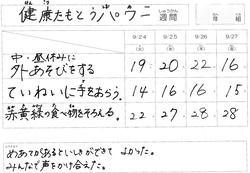 健康たもとうパワー 週間
9/24 9/25 9/26 9/27
中・昼休みに
外あそびをする 19 20 22 16
ていねいに手をあらう。 14 16 16 15
赤黄緑の食べ物をそろえる。 22 27 28 28
めあてがあるといしきができて よかった。
みんなで声をかけ合えた。